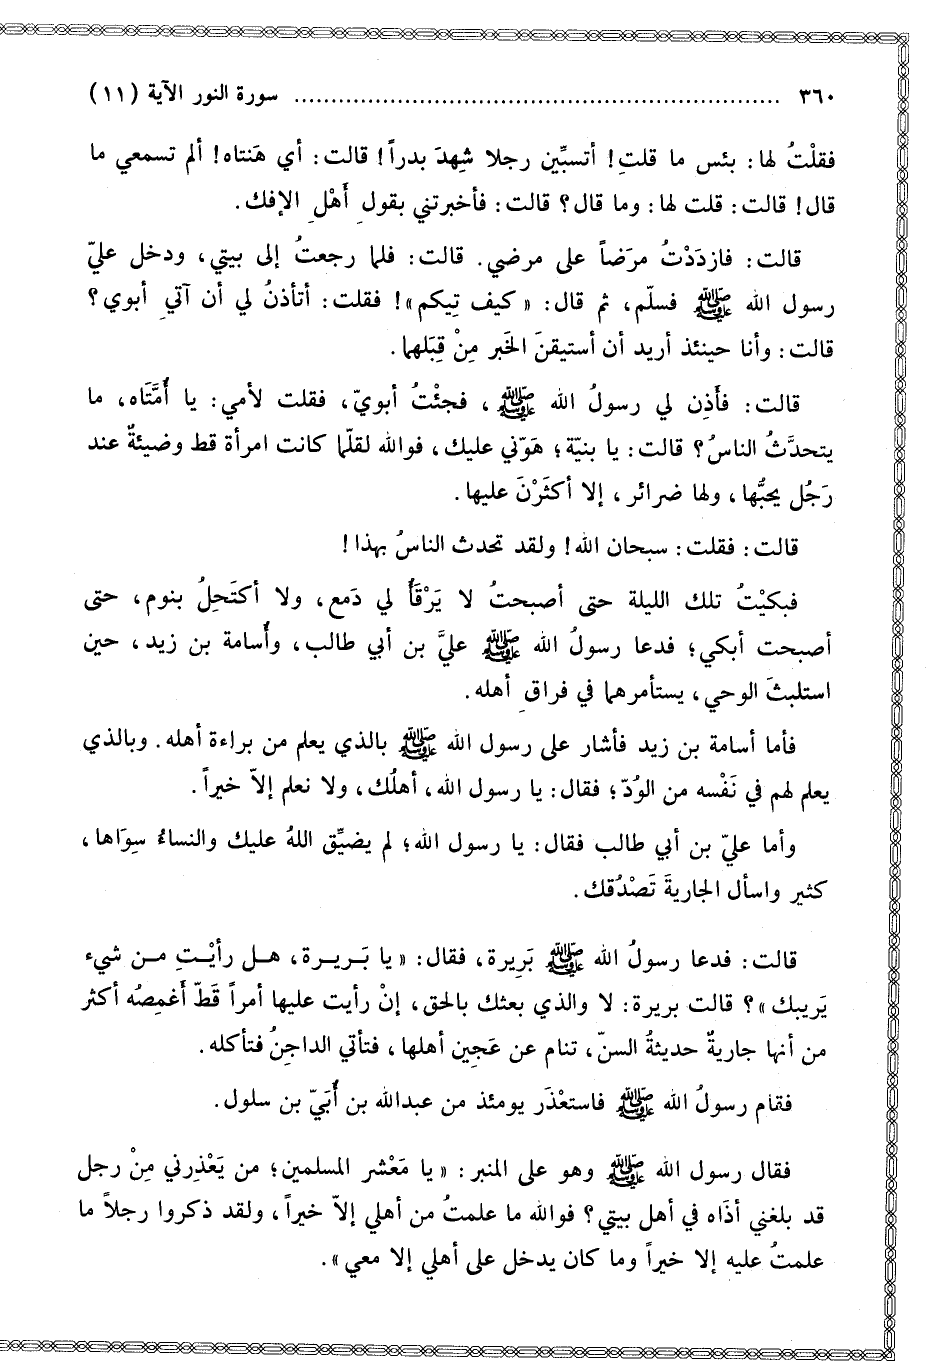 ٣٦٠ ................................................ سورة النور الآية (١١)
فقلْتُ لها: بئس ما قلتِ! أتسبِّين رجلا شِهِدَ بدراً! قالت: أي هَنتاه! ألم تسمعي ما
قال! قالت: قلت لها: وما قال؟ قالت: فأخبرتني بقولِ أَهْلِ الإفك.
قالت: فازدَدْتُ مرَضاً على مرضي. قالت: فلما رجعتُ إلى بيتي، ودخل عليّ
رسول الله ﷺ فسلّم، ثم قال: «كيف تِيكم»! فقلت: أتأذنُ لي أن آتي أبوي؟
قالت: وأنا حينئذ أريد أن أستيقنَ الخَبر مِنْ قِبَلهما.
قالت: فأَذِن لي رسولُ الله ﷺ، فجئْتُ أبويّ، فقلت لأمي: يا أُمَّتَاه، ما
يتحدَّثُ الناسُ؟ قالت: يا بنيّة؛ هَوّني عليك، فوالله لقلّما كانت امرأة قط وضيئةٌ عند
رَجُل يحبُّها، ولها ضرائر، إلا أكثَرْنَ عليها.
قالت: فقلت: سبحان الله! ولقد تحدث الناسُ بهذا!
فبكيْتُ تلك الليلة حتى أصبحتُ لا يَرْقَأُ لي دَمع، ولا أكتَحِلُ بنوم، حتى
أصبحت أبكي؛ فدعا رسولُ الله ﷺ عليَّ بن أبي طالب، وأُسامة بن زيد، حين
استلبثَ الوحي، يستأمرهما في فراقِ أهله.
فأما أسامة بن زيد فأشار على رسول الله ﷺ بالذي يعلم من براءة أهله. وبالذي
يعلم لهم في نَفْسه من الوُدّ؛ فقال: يا رسول الله، أهلُك، ولا نعلم إلاّ خيراً.
وأما عليّ بن أبي طالب فقال: يا رسول الله؛ لم يضيِّق اللهُ عليك والنساءُ سِوَاها،
كثير واسأل الجاريةَ تَصْدُقك.
قالت: فدعا رسولُ الله ﷺ بَرِيرة، فقال: «يا بَريرة، هل رأيْتِ من شيء
يَريبك»؟ قالت بريرة: لا والذي بعثك بالحق، إنْ رأيت عليها أمراً قَطّ أَغمِصُه أكثر
من أنها جاريةٌ حديثةُ السنّ، تنام عن عَجِين أهلها، فتأتي الداجنُ فتأكله.
فقام رسولُ الله ﷺ فاستعْذَر يومئذ من عبدالله بن أُبَيّ بن سلول.
فقال رسول الله ﷺ وهو على المنبر: «يا مَعْشر المسلمين؛ من يَعْذِرني مِنْ رجل
قد بلغني أذَاه في أهل بيتي؟ فوالله ما علمتُ من أهلي إلاّ خيراً، ولقد ذكروا رجلاً ما
علمتُ عليه إلا خيراً وما كان يدخل على أهلي إلا معي».